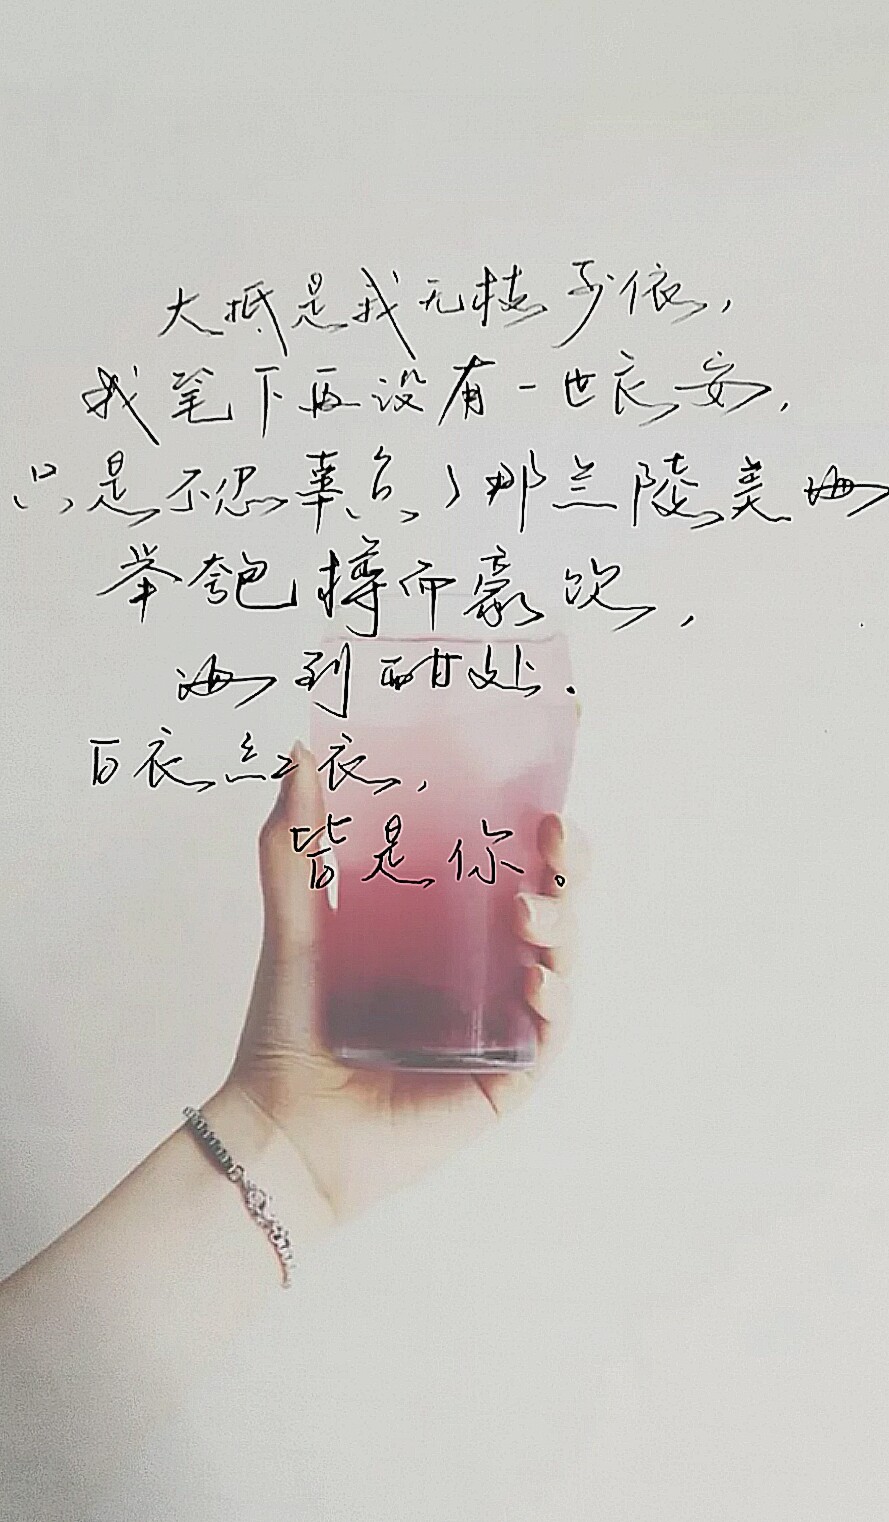 大抵是我无枝可依，
我笔下再没有一世长安，
只是不忍辜负了那兰陵美酒
举匏樽而豪饮，
酒到酣处.
白衣红衣，
皆是你。